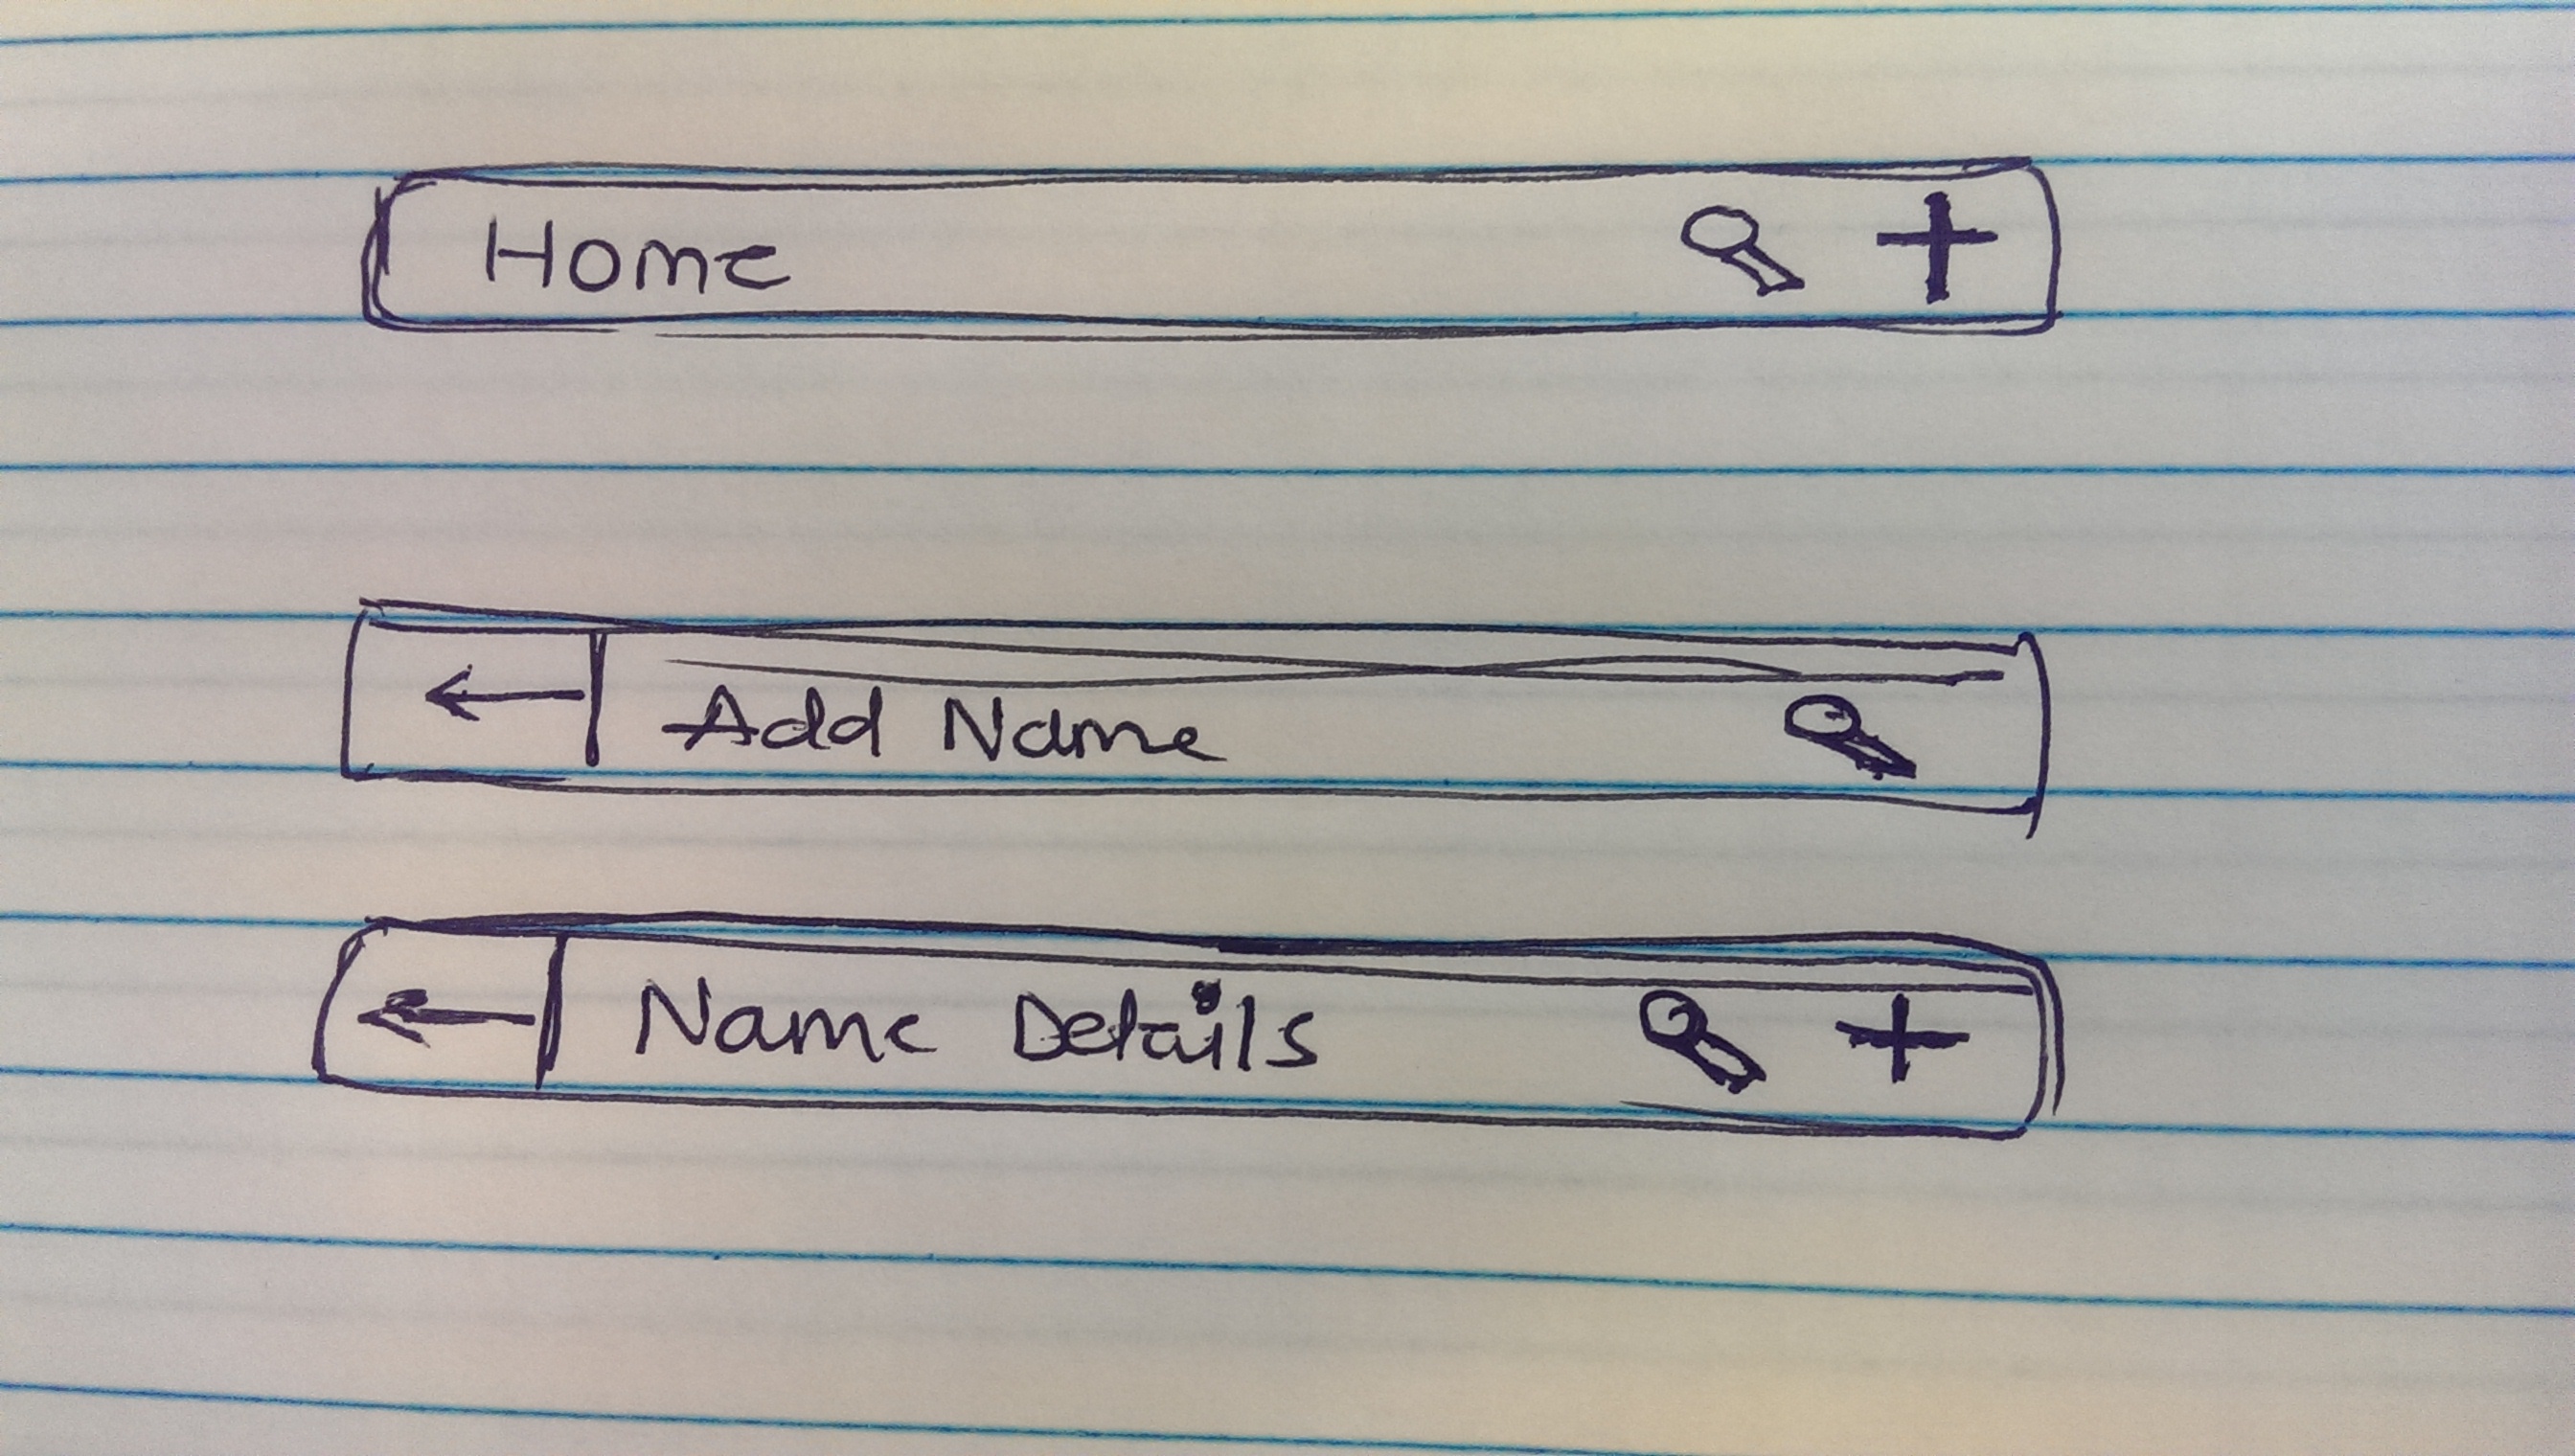 Home
Add Name
Name Details